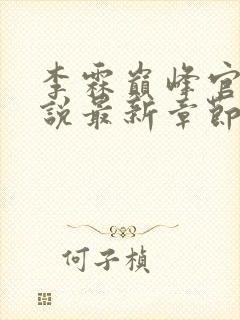 李霖巔峰官
說最新章節
何子楨